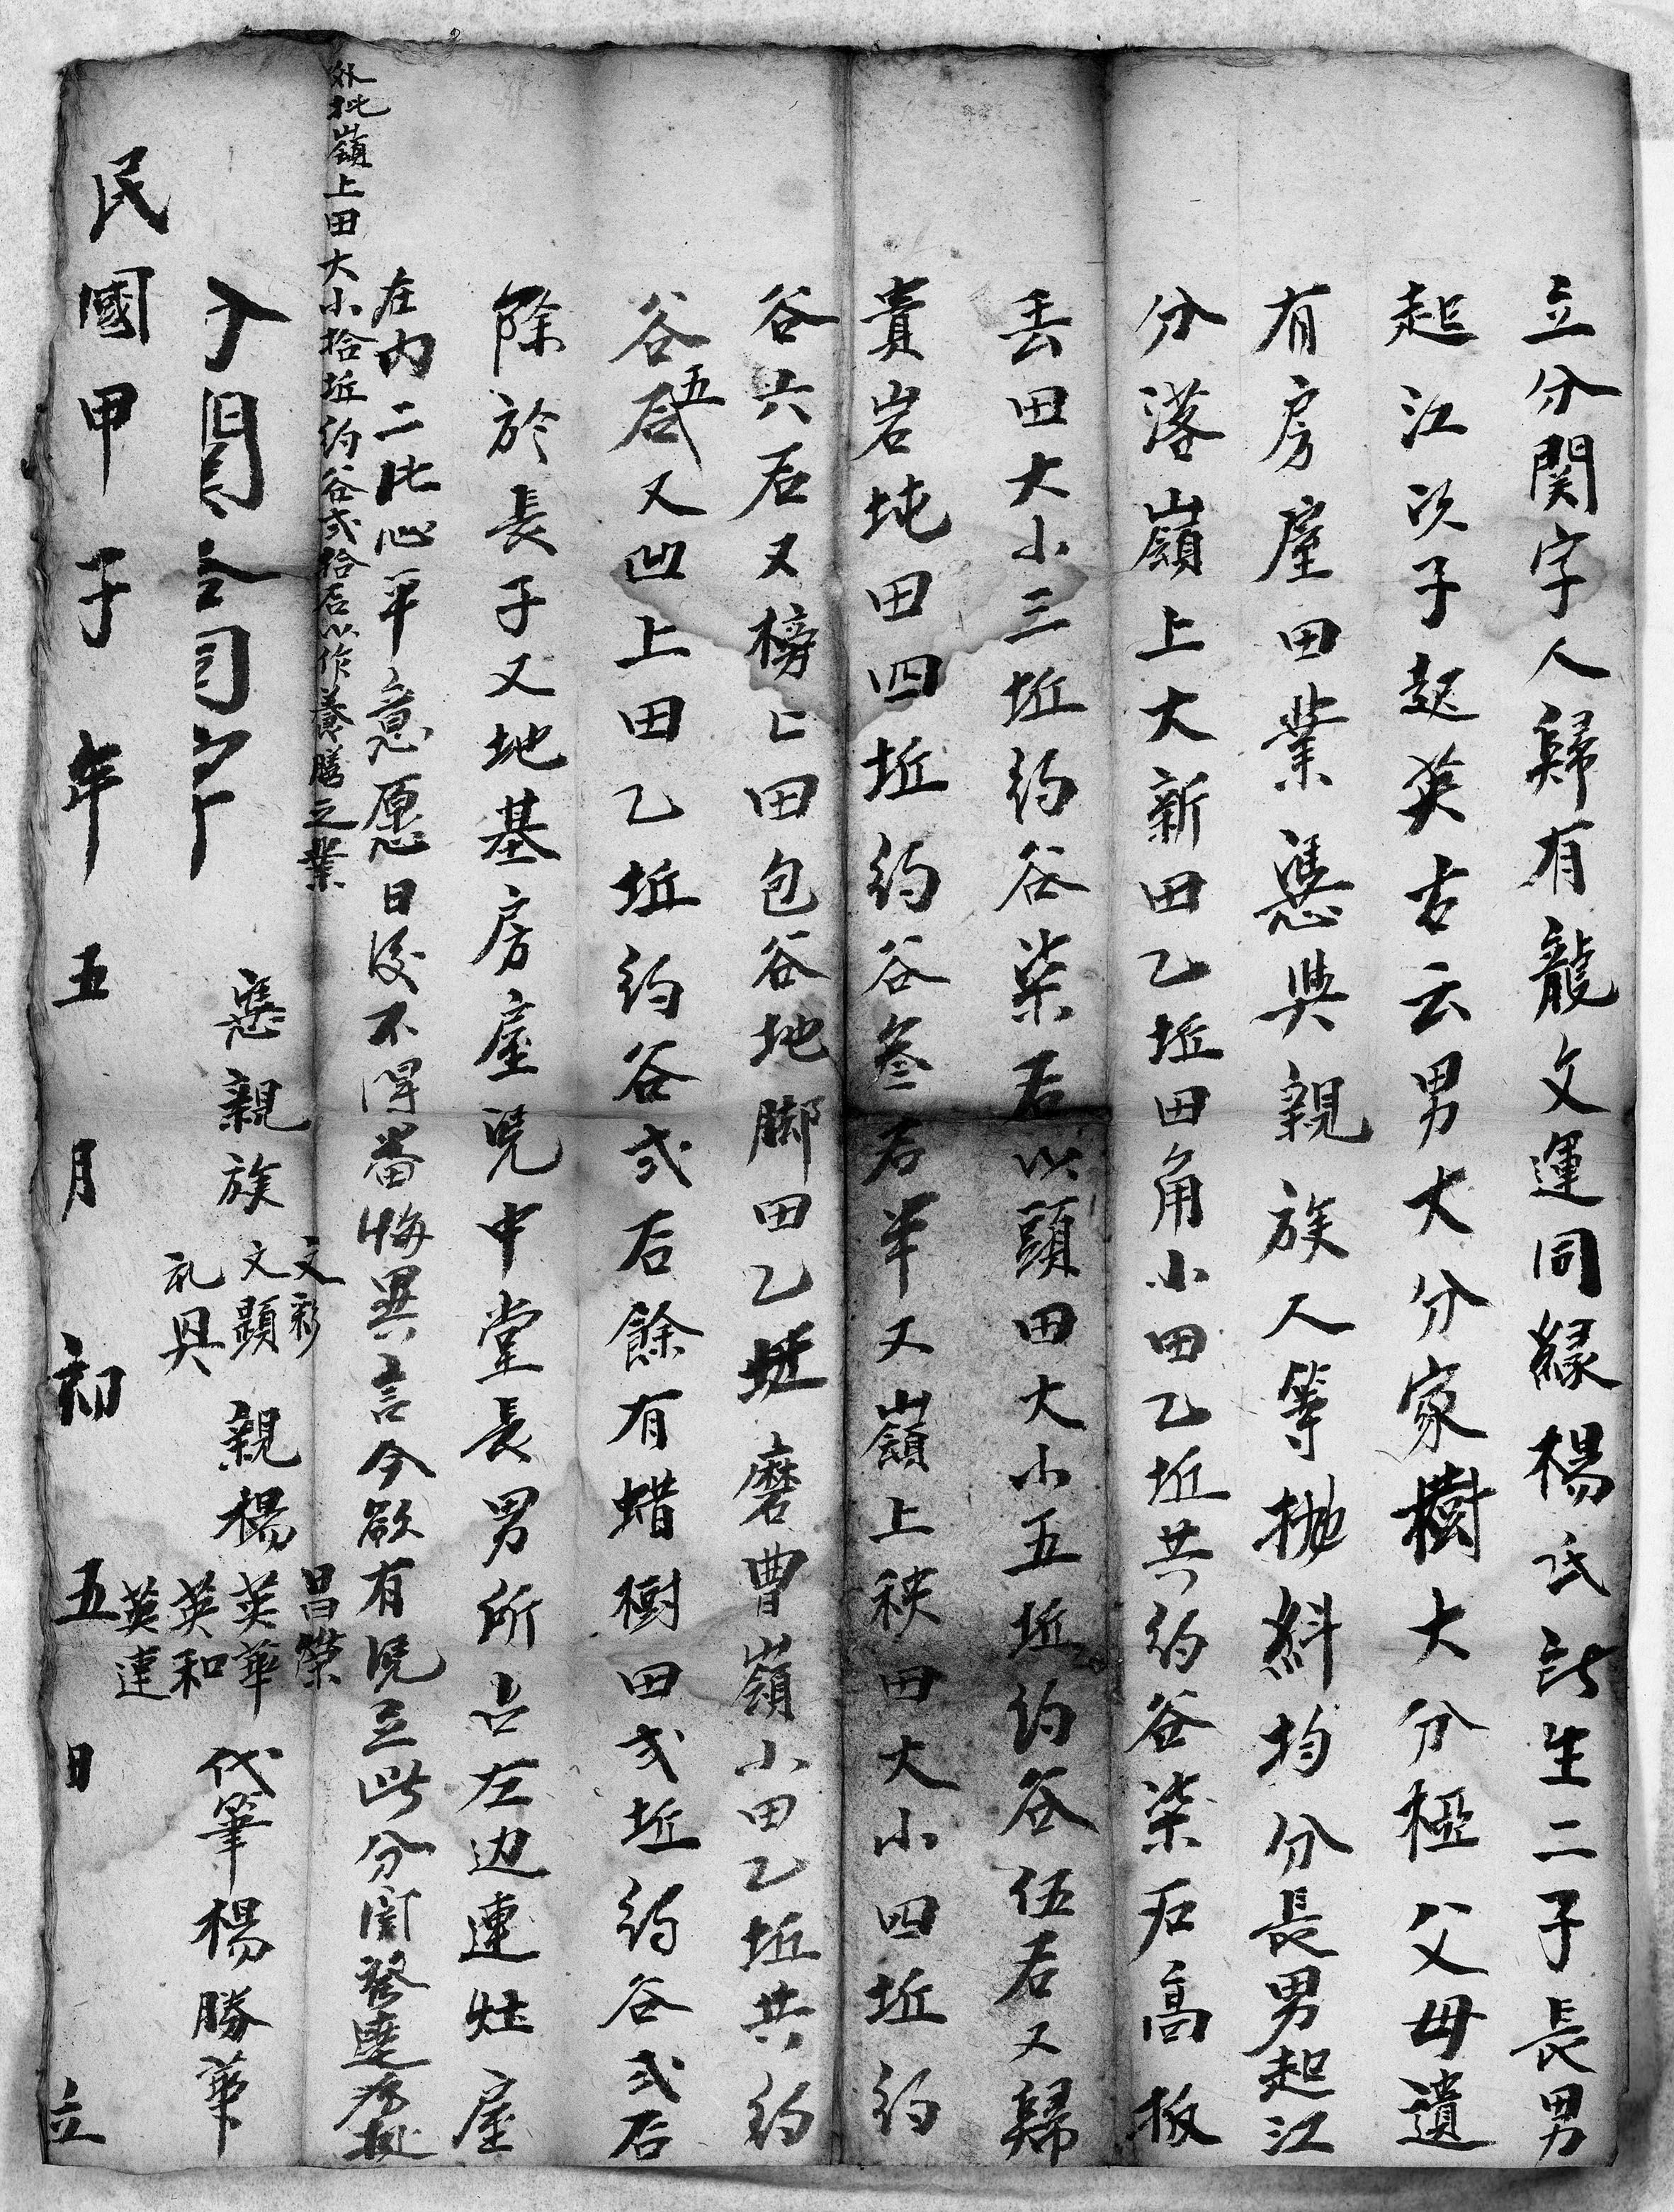 立分関字人歸有龍文運同緣楊氏所生二子長男
起江次子起英古云男大分家樹大分椏父母遺
有房屋田業憑與親族人等抛斜均分長男起江
分落嶺上大新田乙坵田角小田乙坵共約谷柒石高坂
丢田大小三坵約谷柒石以頭田大小五坵約谷伍石又歸
責岩坉田四坵約谷叁石半又嶺上秧田大小四坵約
谷六石又榜上田包谷地脚田乙坵磨曹嶺小田乙坵共約
谷五石又凹上田乙坵約谷弍石餘有蜡樹田弍坵約谷弍石
除於長子又地基房屋凭中堂長男所占左边連灶屋
在内二比心平意愿日後不得番悔異言今欲有凭立此分関發達為據
外批嶺上田大小拾坵約谷弍拾石以作養膳之業
憑親族 文彩 文顕 礼具 親楊 昌榮 英華 英和 英連 代筆楊勝華
民國甲子年五月初五日立